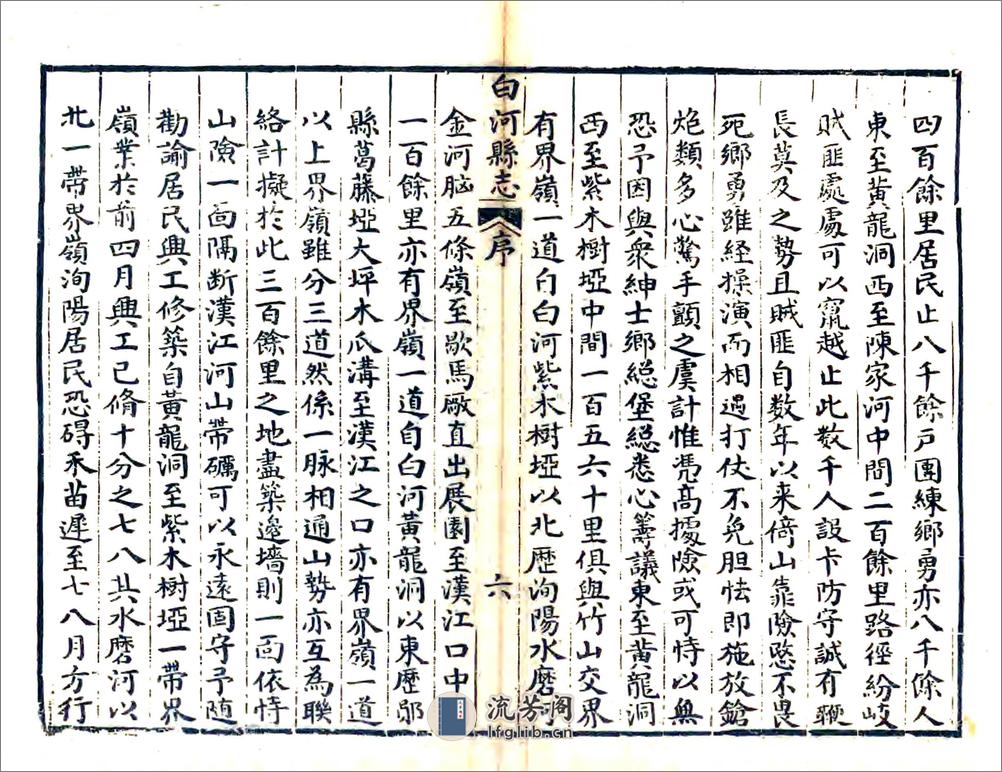 四百餘里居民止八千餘戶團練鄉勇亦八千餘人
東至黃龍洞西至陳家河中間二百餘里路徑紛岐
賊匪處處可以竄越止此数千人設卡防守誠有鞭
長莫及之勢且賊匪自数年以来倚山靠險愍不畏
死鄉勇雖経操演而相遇打仗不免胆怯即施放鎗
炮類多心驚手顫之虞計惟凭高據險或可恃以無
恐予因與衆紳士鄉総堡総悉心籌議東至黃龍洞
西至紫木樹埡中間一百五六十里俱與竹山交界
有界嶺一道自白河紫木樹埡以北歷洵陽水磨河
白河縣志 序 六
金河脑五條嶺至歇馬厰直出展園至漢江口中
一百餘里亦有界嶺一道自白河黃龍洞以東歷鄖
縣葛藤埡大坪木瓜溝至漢江之口亦有界嶺一道
以上界嶺雖分三道然係一脉相通山勢亦互為聯
絡計擬於此三百餘里之地盡築邊墻則一面依恃
山險一面隔断漢江河山帶礪可以永遠固守予随
勸諭居民興工修築自黃龍洞至紫木樹埡一帶界
嶺業於前四月興工已脩十分之七八其水磨河以
北一帶界嶺洵陽居民恐碍禾苗遲至七八月方行
流芳阁
lfglib.cn